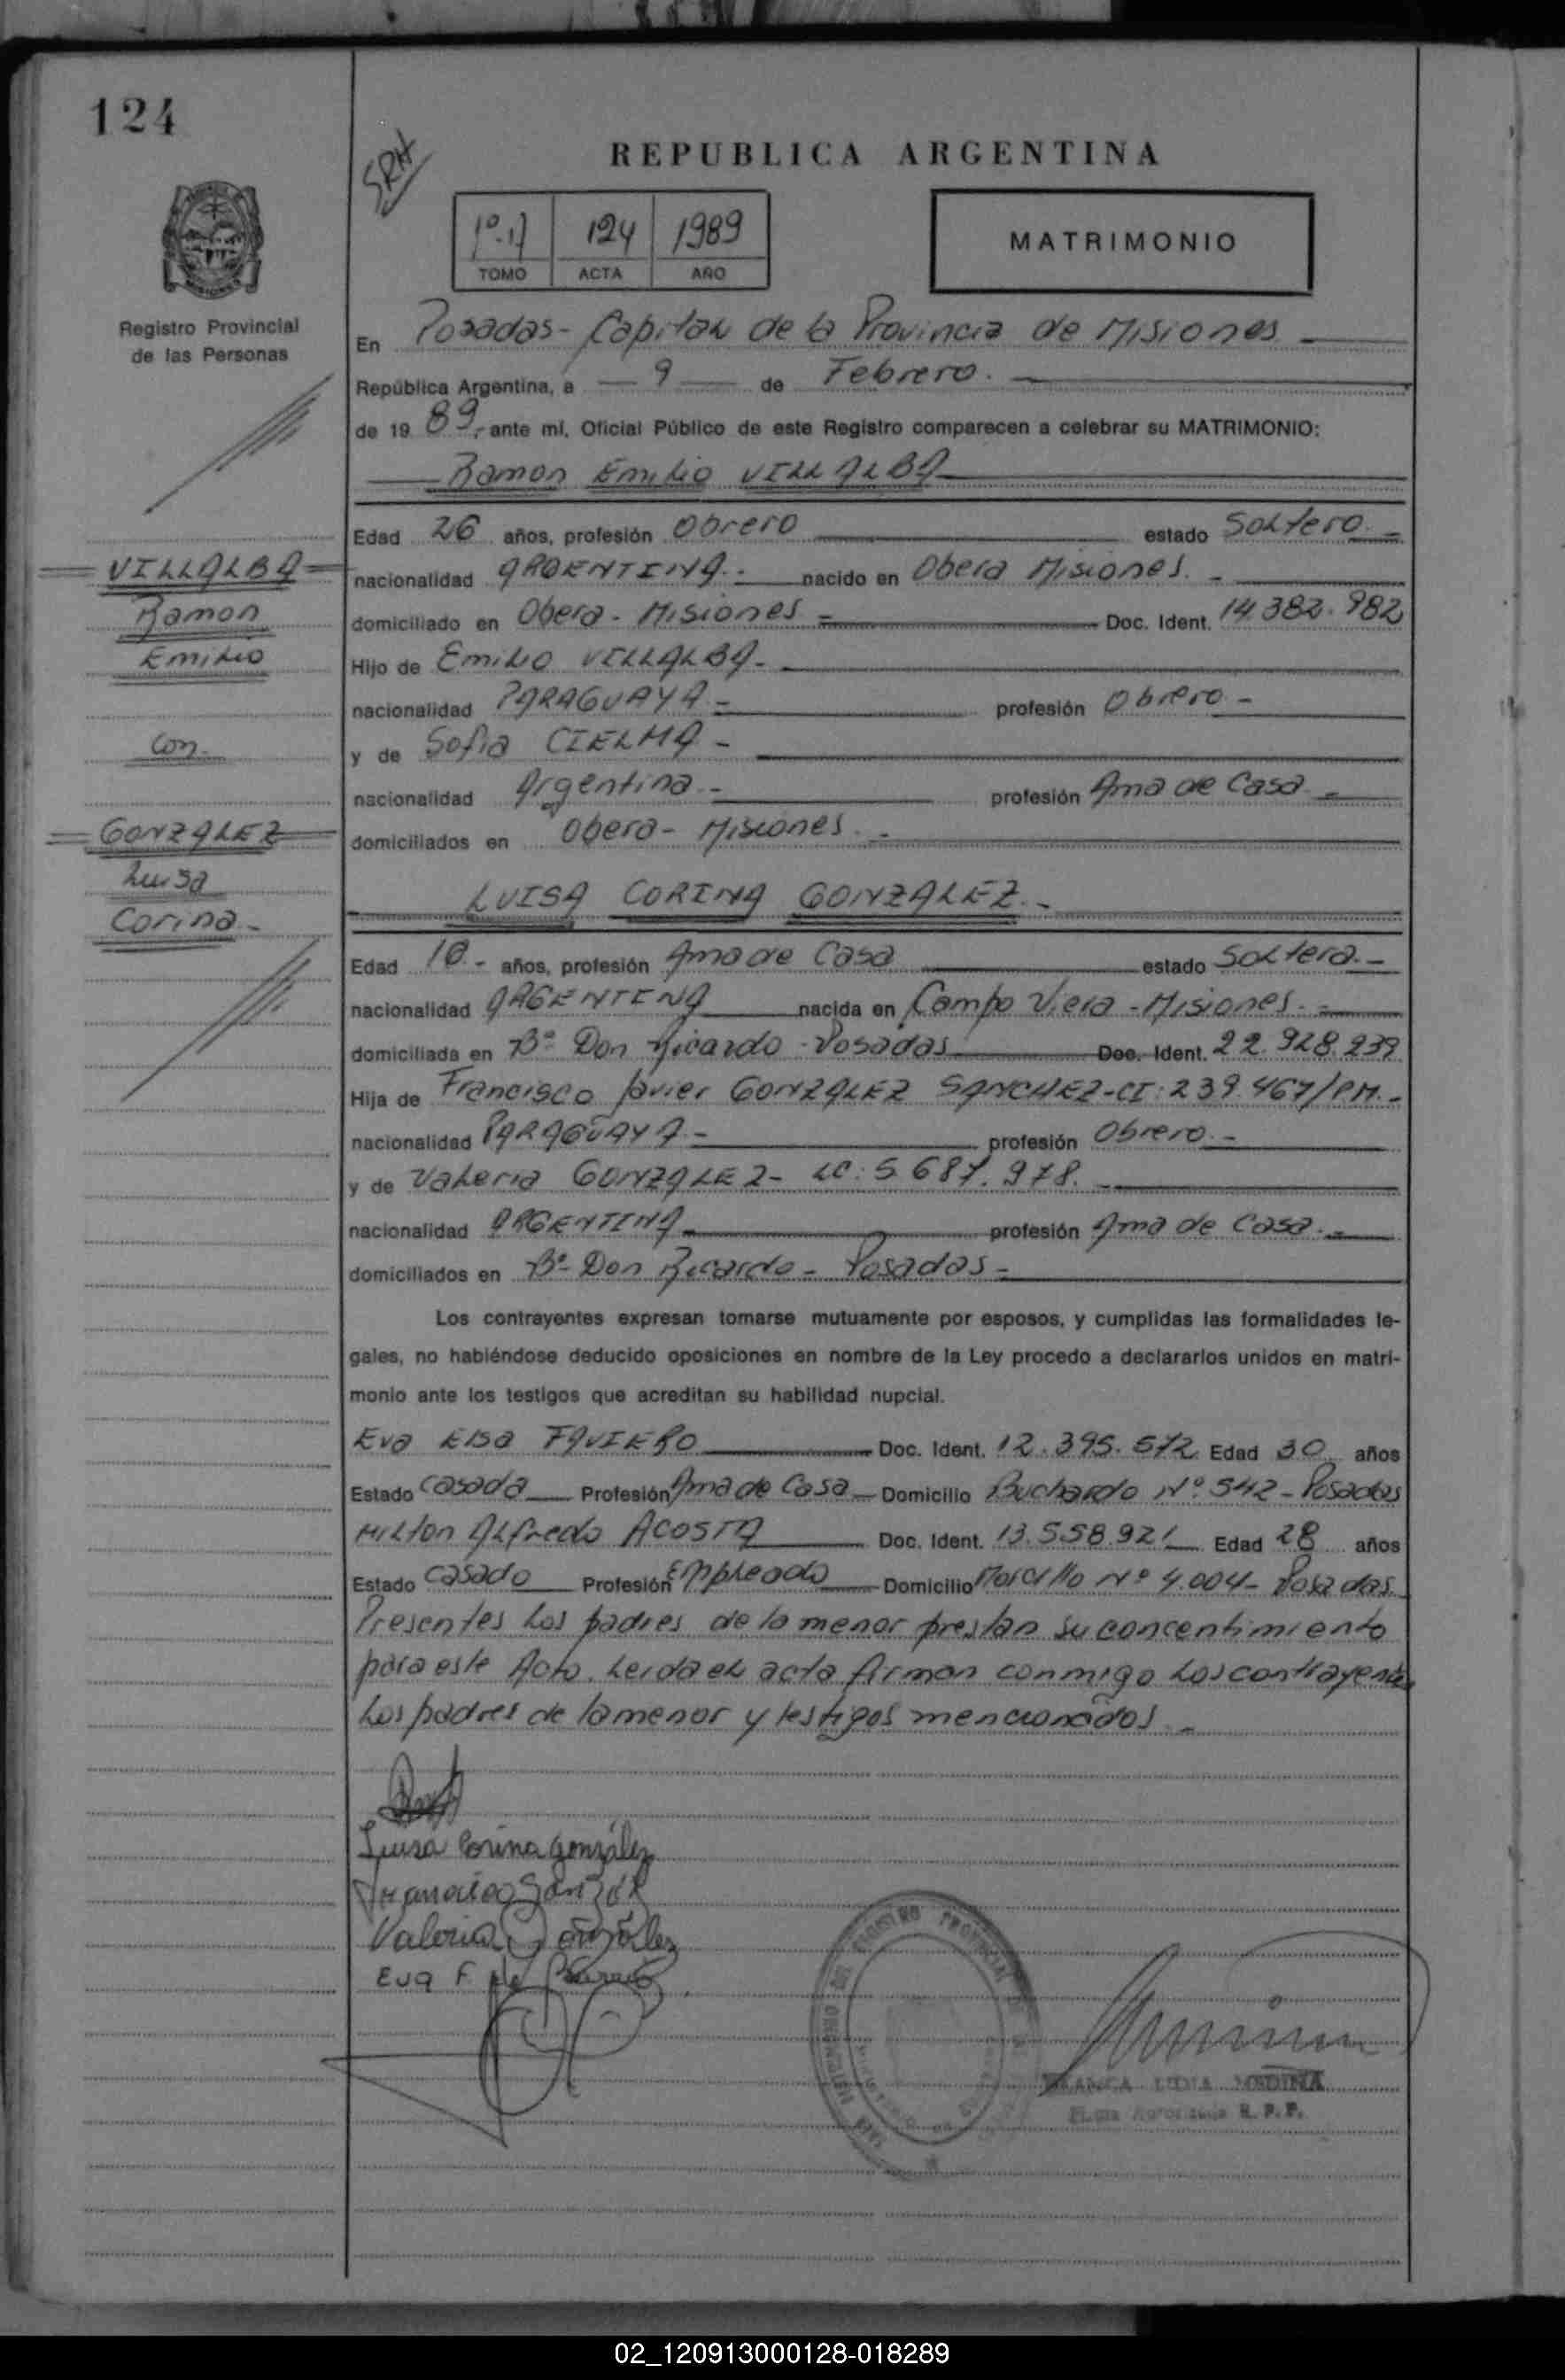 124
REPUBLICA ARGENTINA
SRH
1º.1)
124
1989
TOMO
ACTA
AÑO
MATRIMONIO
Registro Provincial
de las Personas
En Posadas - Capital de la Provincia de Misiones
República Argentina, a 9 de Febrero.
de 19 89, ante mí, Oficial Público de este Registro comparecen a celebrar su MATRIMONIO:
Ramon Emilio VILLALBA
Edad 26 años, profesión Obrero estado Soltero -
nacionalidad ARGENTINA - nacido en Obera Misiones. -
domiciliado en Obera - Misiones - Doc. Ident. 14.382.982
Hijo de Emilio VILLALBA -
nacionalidad PARAGUAYA - profesión Obrero -
y de Sofia CIELMA -
nacionalidad Argentina - profesión Ama de Casa -
domiciliados en Obera - Misiones. -
VILLALBA
Ramon
Emilio
Con
GONZALEZ
Luisa
Corina -
LUISA CORINA GONZALEZ. -
Edad - años, profesión Ama de Casa estado Soltera. -
nacionalidad ARGENTINA nacida en Campo Viera - Misiones. -
domiciliada en Bº Don Ricardo - Posadas Doc. Ident. 22.928.239
Hija de Francisco Javier GONZALEZ SANCHEZ - CI: 239.467/P.M. -
nacionalidad PARAGUAYA - profesión Obrero. -
y de Valeria GONZALEZ - LC: 5.687.978. -
nacionalidad ARGENTINA - profesión Ama de Casa. -
domiciliados en Bº Don Ricardo - Posadas -
Los contrayentes expresan tomarse mutuamente por esposos, y cumplidas las formalidades le-
gales, no habiéndose deducido oposiciones en nombre de la Ley procedo a declararlos unidos en matri-
monio ante los testigos que acreditan su habilidad nupcial.
Eva Elsa FAVIERO Doc. Ident. 12.395.572 Edad 30 años
Estado Casada Profesión Ama de Casa Domicilio Buchardo Nº 542 - Posadas
Milton Alfredo ACOSTA Doc. Ident. 13.558.921 Edad 28 años
Estado Casado Profesión Empleado Domicilio Nº 4.004 - Posadas
Presentes los padres de la menor prestan su concentimiento
para este Acto. Leida el acta firman conmigo los contrayentes
los padres de la menor y testigos mencionados. -
Luisa Corina González
Francisco
Valeria González
Eva F. de
REGISTRO PROVINCIAL
BLANCA MEDINA
Firma Autorizada R. P. P.
02_120913000128-018289